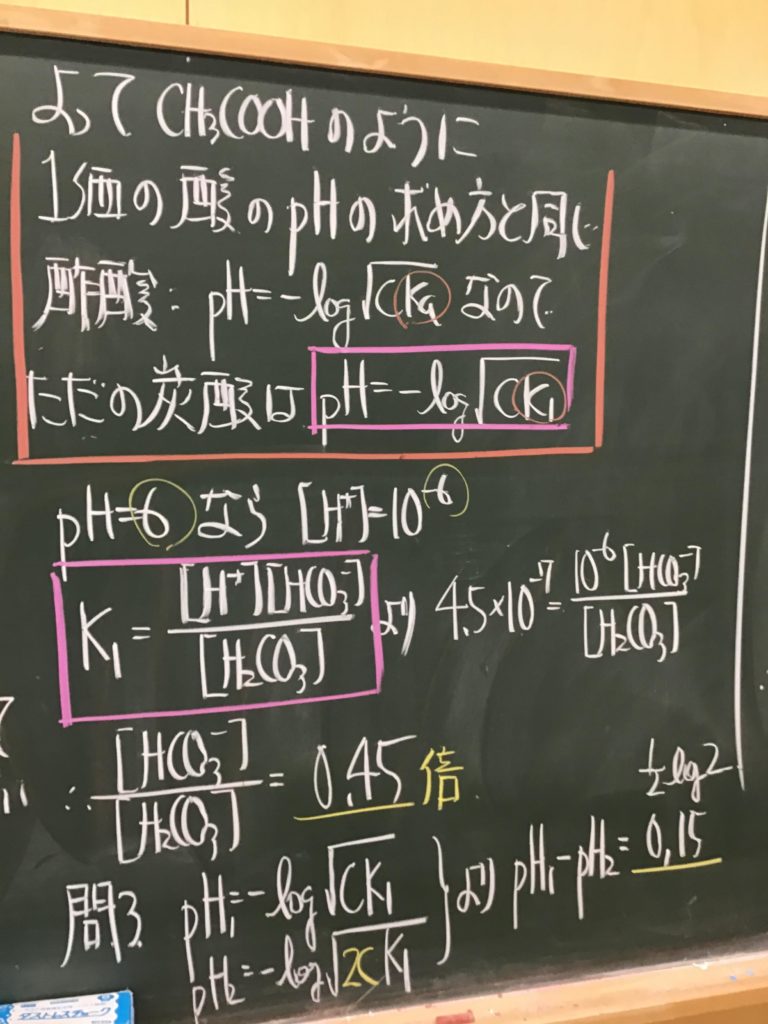 よって CH₃COOHのように
1価の酸のpHの求め方と同じ
酢酸: pH=-log√CK₁ なので
ただの炭酸は pH=-log√CK₁
pH=6 なら [H⁺]=10⁻⁶
K₁ = [H⁺][HCO₃⁻]/[H₂CO₃] より 4.5×10⁻⁷ = 10⁻⁶[HCO₃⁻]/[H₂CO₃]
∴ [HCO₃⁻]/[H₂CO₃] = 0.45倍
½log2
問3. pH₁=-log√CK₁
pH₂=-log√2CK₁
より pH₁-pH₂=0.15
ダストレスチョーク